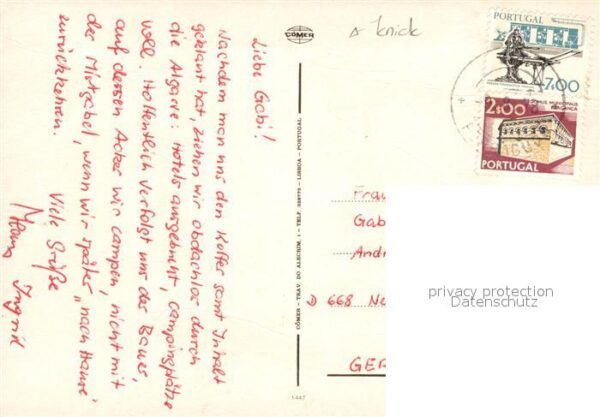 Liebe Gabi!
Nachdem man uns den Koffer samt Inhalt
geklaut hat, ziehen wir obdachlos durch
die Algarve: Hotels ausgebucht, Campingplätze
voll. Hoffentlich verfolgt uns der Bauer,
auf dessen Acker wir campen, nicht mit
der Mistgabel, wenn wir später "nach Hause"
zurückkehren.
Viele Grüße
Ingrid
CÔMER
CÔMER - TRAV. DO ALECRIM, 1 - TELF. 328775 - LISBOA - PORTUGAL
1447
knick
PORTUGAL
7$00
2$00
DOMUS MUNICIPALIS
BRAGANÇA
PORTUGAL
Frau
Gab
Andr
D 668 Ne
GER
privacy protection
Datenschutz